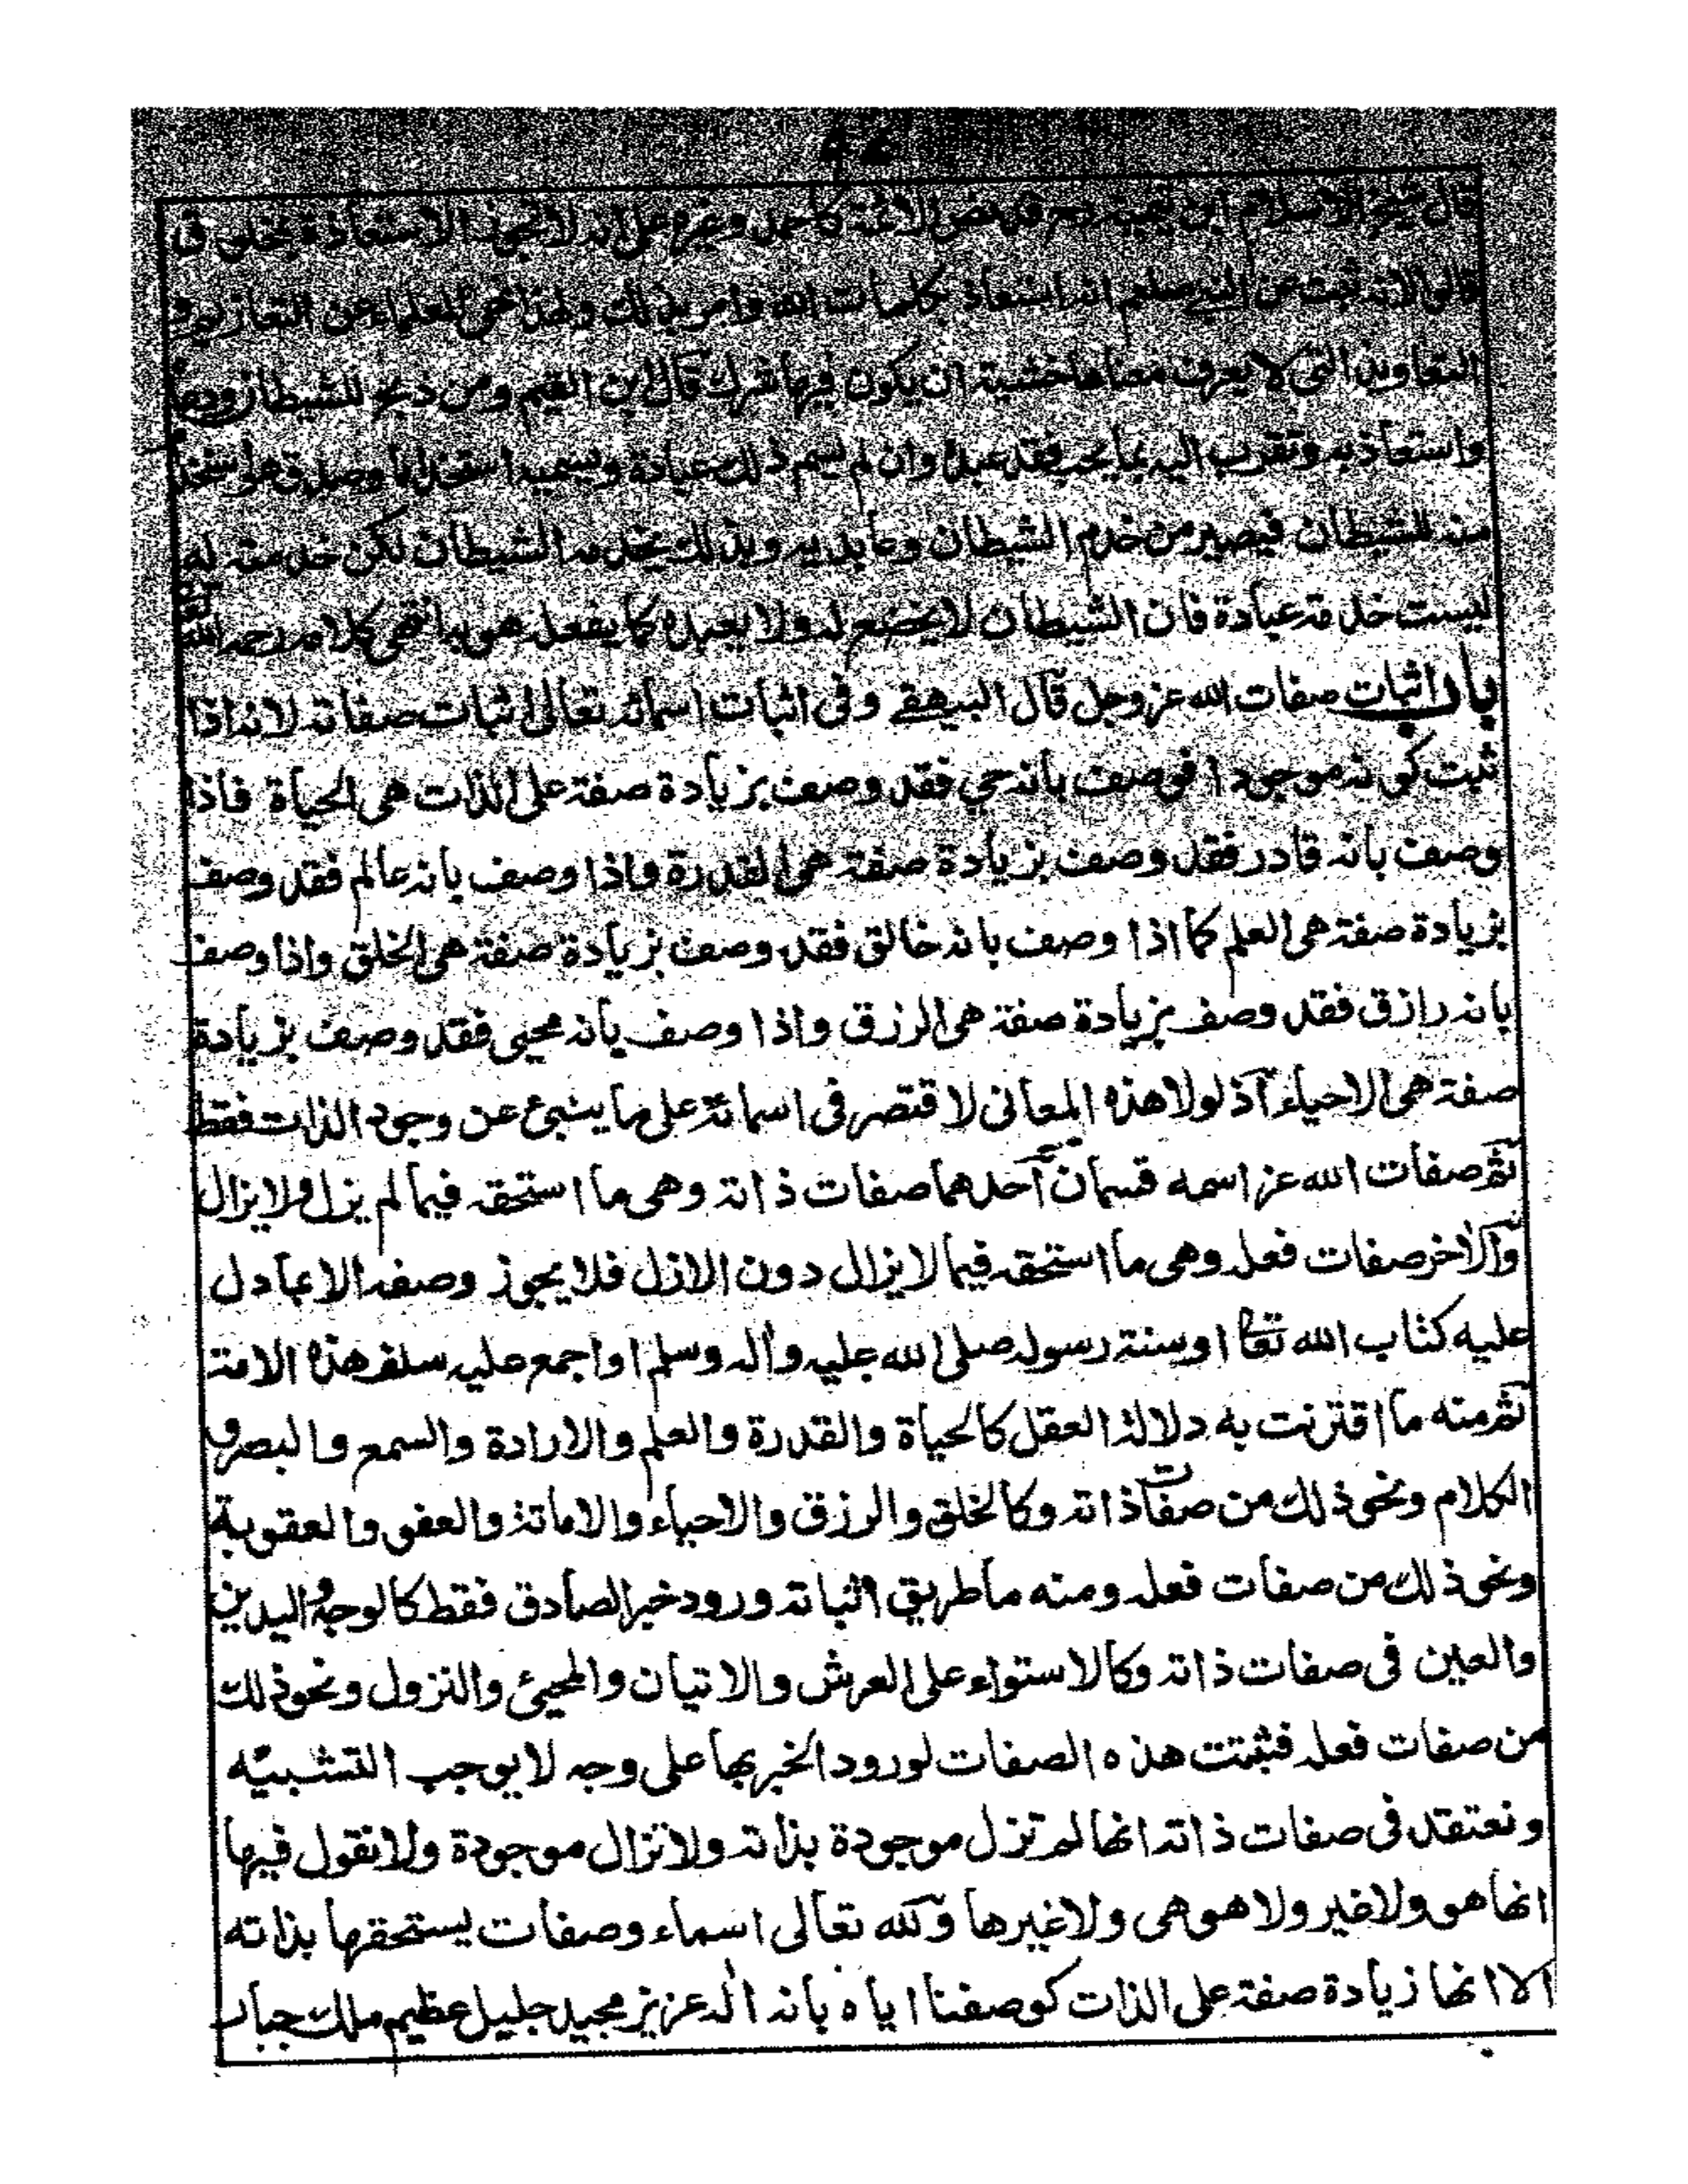 قال شيخ الاسلام ابن تيمية رح وقد نص الائمة كاحمد وغيره على انه لا تجوز الاستعاذة بمخلوق
قالوا لانه ثبت عن النبي صلعم انه استعاذ بكلمات الله وامر بذلك ولهذا نهى العلماء عن التعازيم و
التعاويذ التى لا يعرف معناها خشية ان يكون فيها شرك قال ابن القيم ومن ذبح للشيطان ودعاه
واستعاذ به وتقرب اليه بما يحب فقد عبده وان لم يسم ذلك عبادة ويسميه استخداما وصدق هو استخدام
من الشيطان فيصير من خدم الشيطان وعابديه وبذلك يخدمه الشيطان لكن خدمته له
ليست خدمة عبادة فان الشيطان لا يخضع له ولا يعبده كما يفعله هو به انتهى كلامه رحمه الله
باب اثبات صفات الله عز وجل قال البيهقے وفى اثبات اسمائه تعالى اثبات صفاته لانه اذا
ثبت كونه موجودا فوصف بانه حي فقد وصف بزيادة صفة على الذات هى الحياة فاذا
وصف بانه قادر فقد وصف بزيادة صفة هى القدرة واذا وصف بانه عالم فقد وصف
بزيادة صفة هى العلم كما اذا وصف بانه خالق فقد وصف بزيادة صفة هى الخلق واذا وصف
بانه رازق فقد وصف بزيادة صفة هى الرزق واذا وصف بانه محيى فقد وصف بزيادة
صفة هى الاحياء اذ لولا هذه المعانى لاقتصر فى اسمائه على ما ينبئ عن وجود الذات فقط
ثم صفات الله عز اسمه قسمان احدهما صفات ذاته وهى ما استحقه فيما لم يزل ولا يزال
والاخر صفات فعله وهى ما استحقه فيما لا يزال دون الازل فلا يجوز وصفه الا بما دل
عليه كتاب الله تعا اوسنة رسوله صلى الله عليه وأله وسلم او اجمع عليه سلف هذه الامة
ثم منه ما اقترنت به دلالة العقل كالحياة والقدرة والعلم والارادة والسمع والبصر و
الكلام ونحو ذلك من صفات ذاته وكالخلق والرزق والاحياء والاماتة والعفو والعقوبة
ونحو ذلك من صفات فعله ومنه ما طريق اثباته ورود خبر الصادق فقط كالوجه واليدين
والعين فى صفات ذاته وكالاستواء على العرش والاتيان والمجيئ والنزول ونحو ذلك
من صفات فعله فثبتت هذه الصفات لورود الخبر بها على وجه لا يوجب التشبيه
ونعتقد فى صفات ذاته انها لم تزل موجودة بذاته ولا تزال موجودة ولا نقول فيها
انها هو ولا غير ولا هو هى ولا غيرها ولله تعالى اسماء وصفات يستحقها بذاته
الا انها زيادة صفة على الذات كوصفنا اياه بانه اله عزيز مجيد جليل عظيم ملك جبار